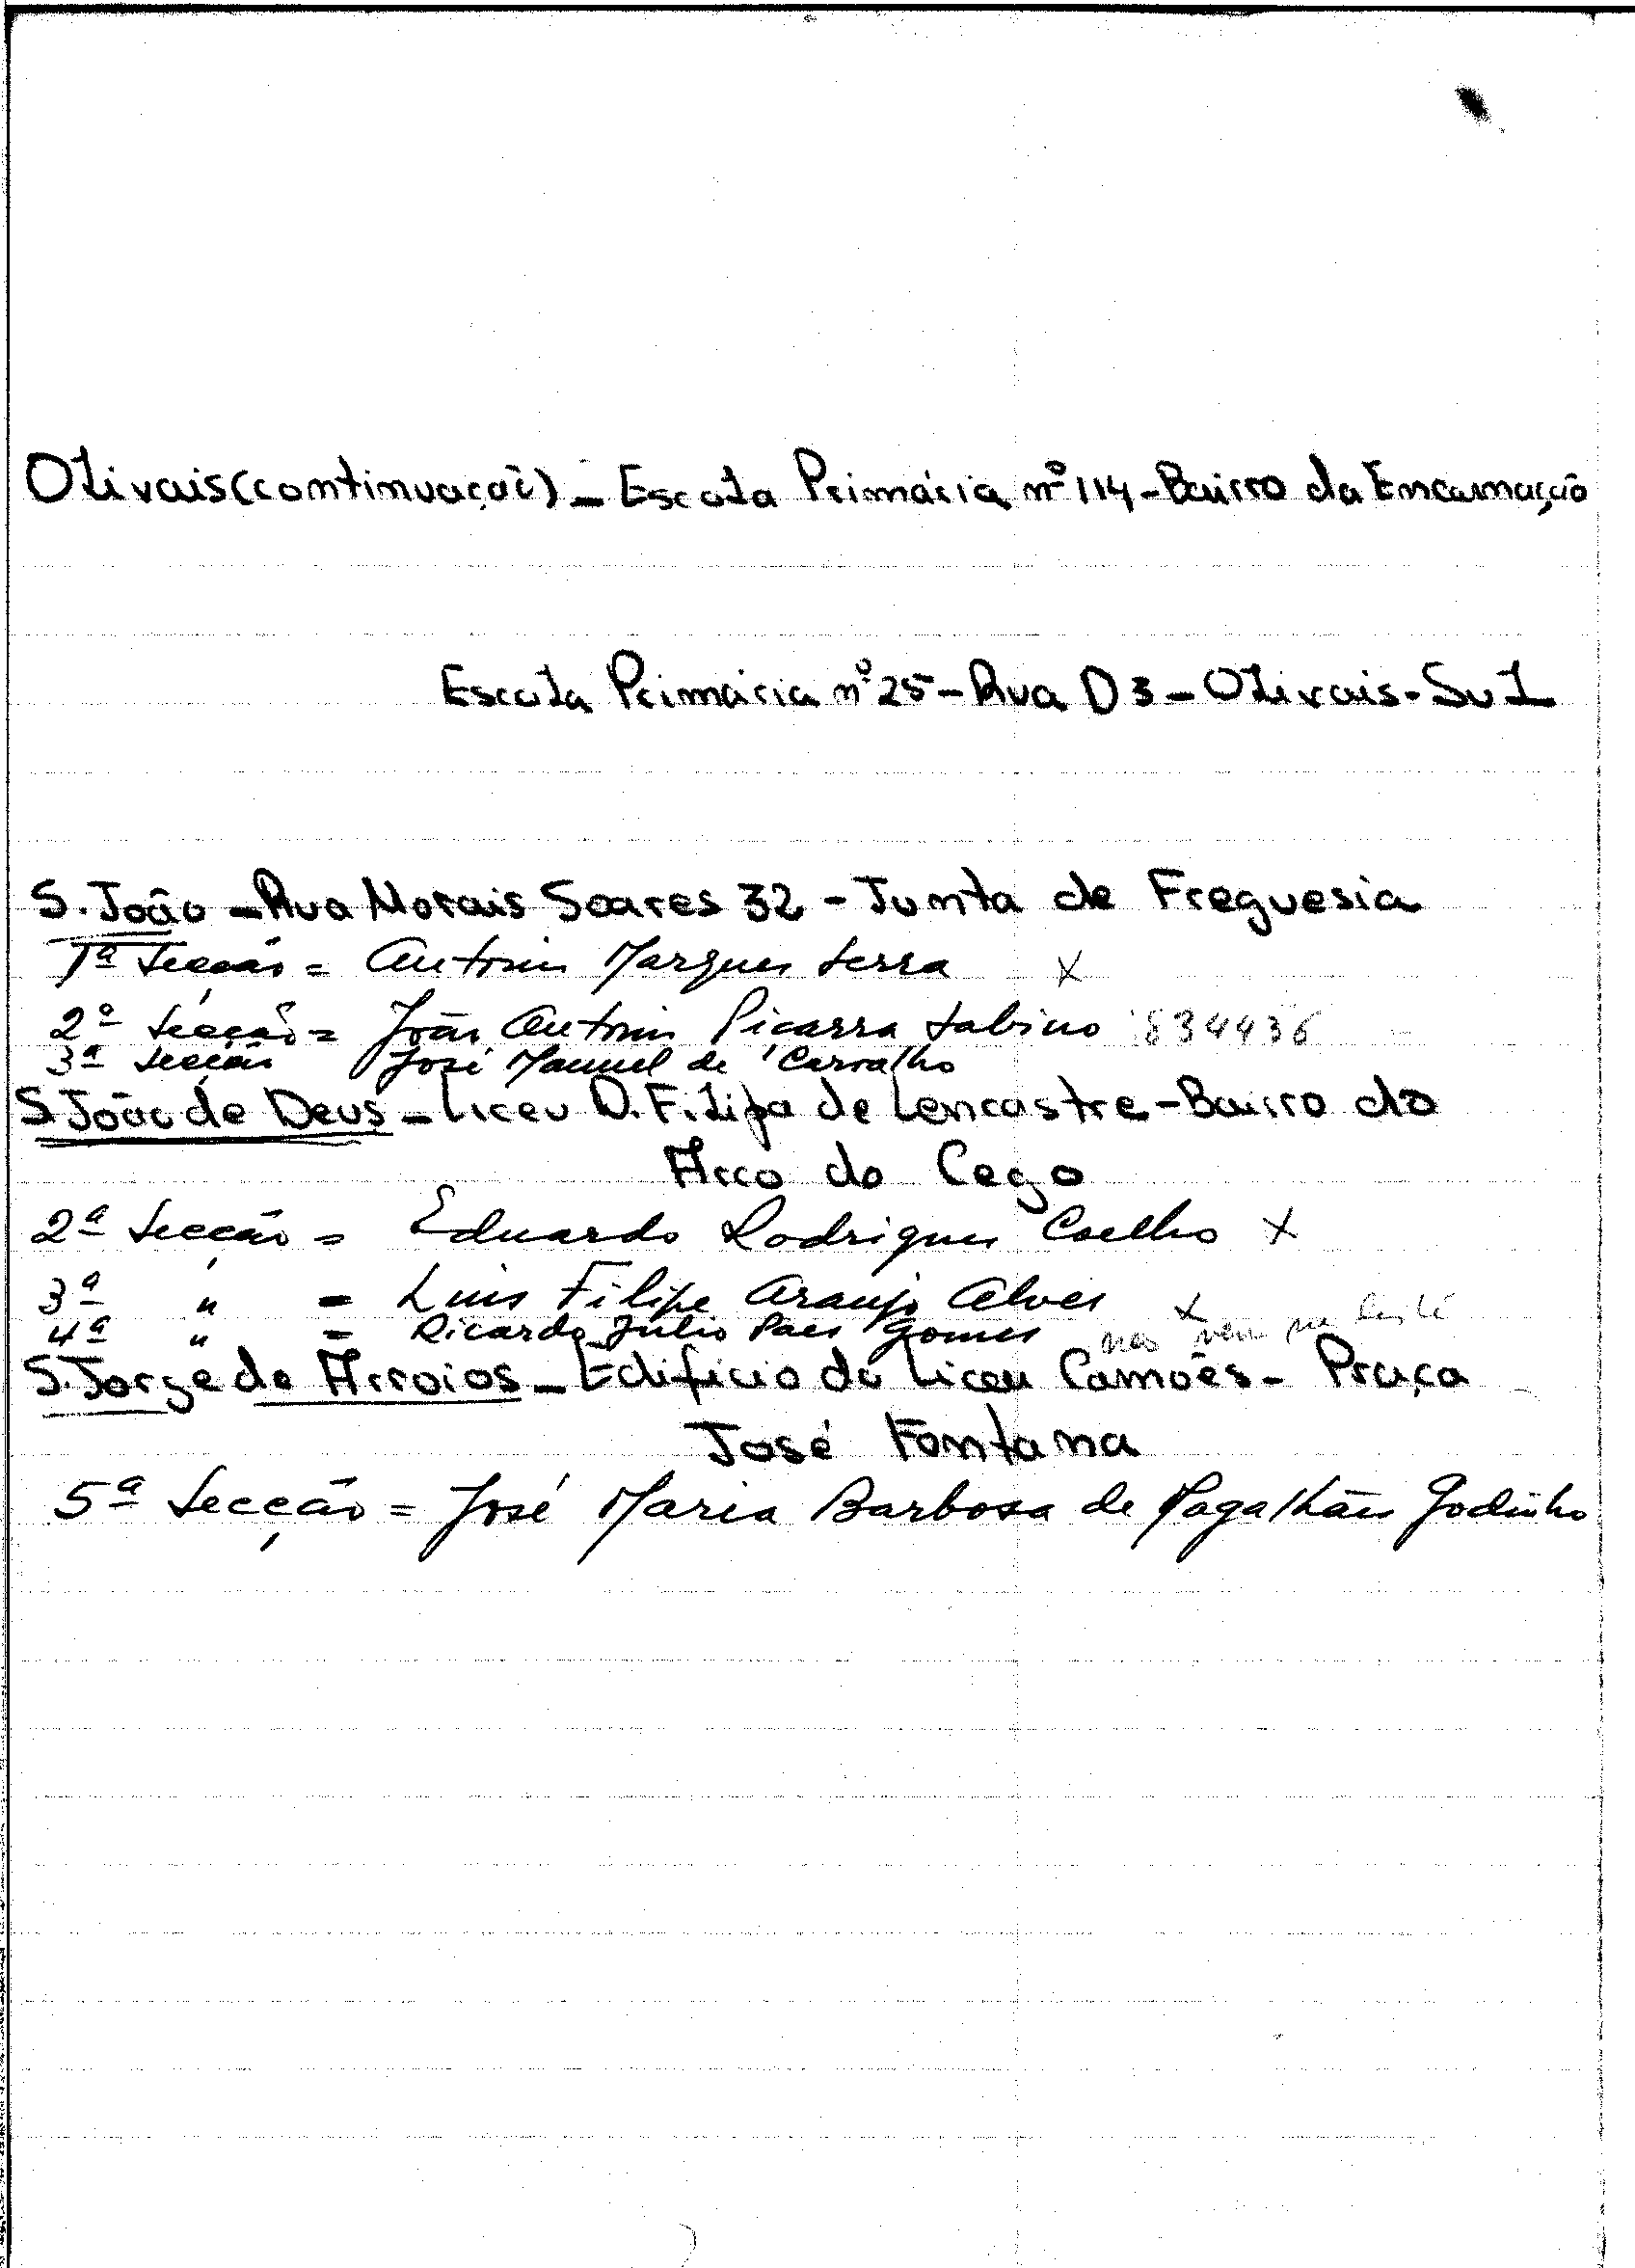 Olivais (continuação) - Escola Primária nº 114 - Bairro da Encarnação
Escola Primária nº 25 - Rua D 3 - Olivais-Sul
S. João - Rua Morais Soares 32 - Junta de Freguesia
1ª Secção = António Marques Serra X
2ª Secção = João António Piçarra Sabino 834436
3ª Secção José Manuel de Carvalho
S João de Deus - Liceu D. Filipa de Lencastre - Bairro do
Arco do Cego
2ª Secção = Eduardo Rodrigues Coelho X
3ª " = Luis Filipe Araujo Alves X
4ª " = Ricardo Júlio Paes Gomes não vem na
S. Jorge de Arroios - Edifício do Liceu Camões - Praça
José Fontana
5ª Secção = José Maria Barbosa de Magalhães Godinho